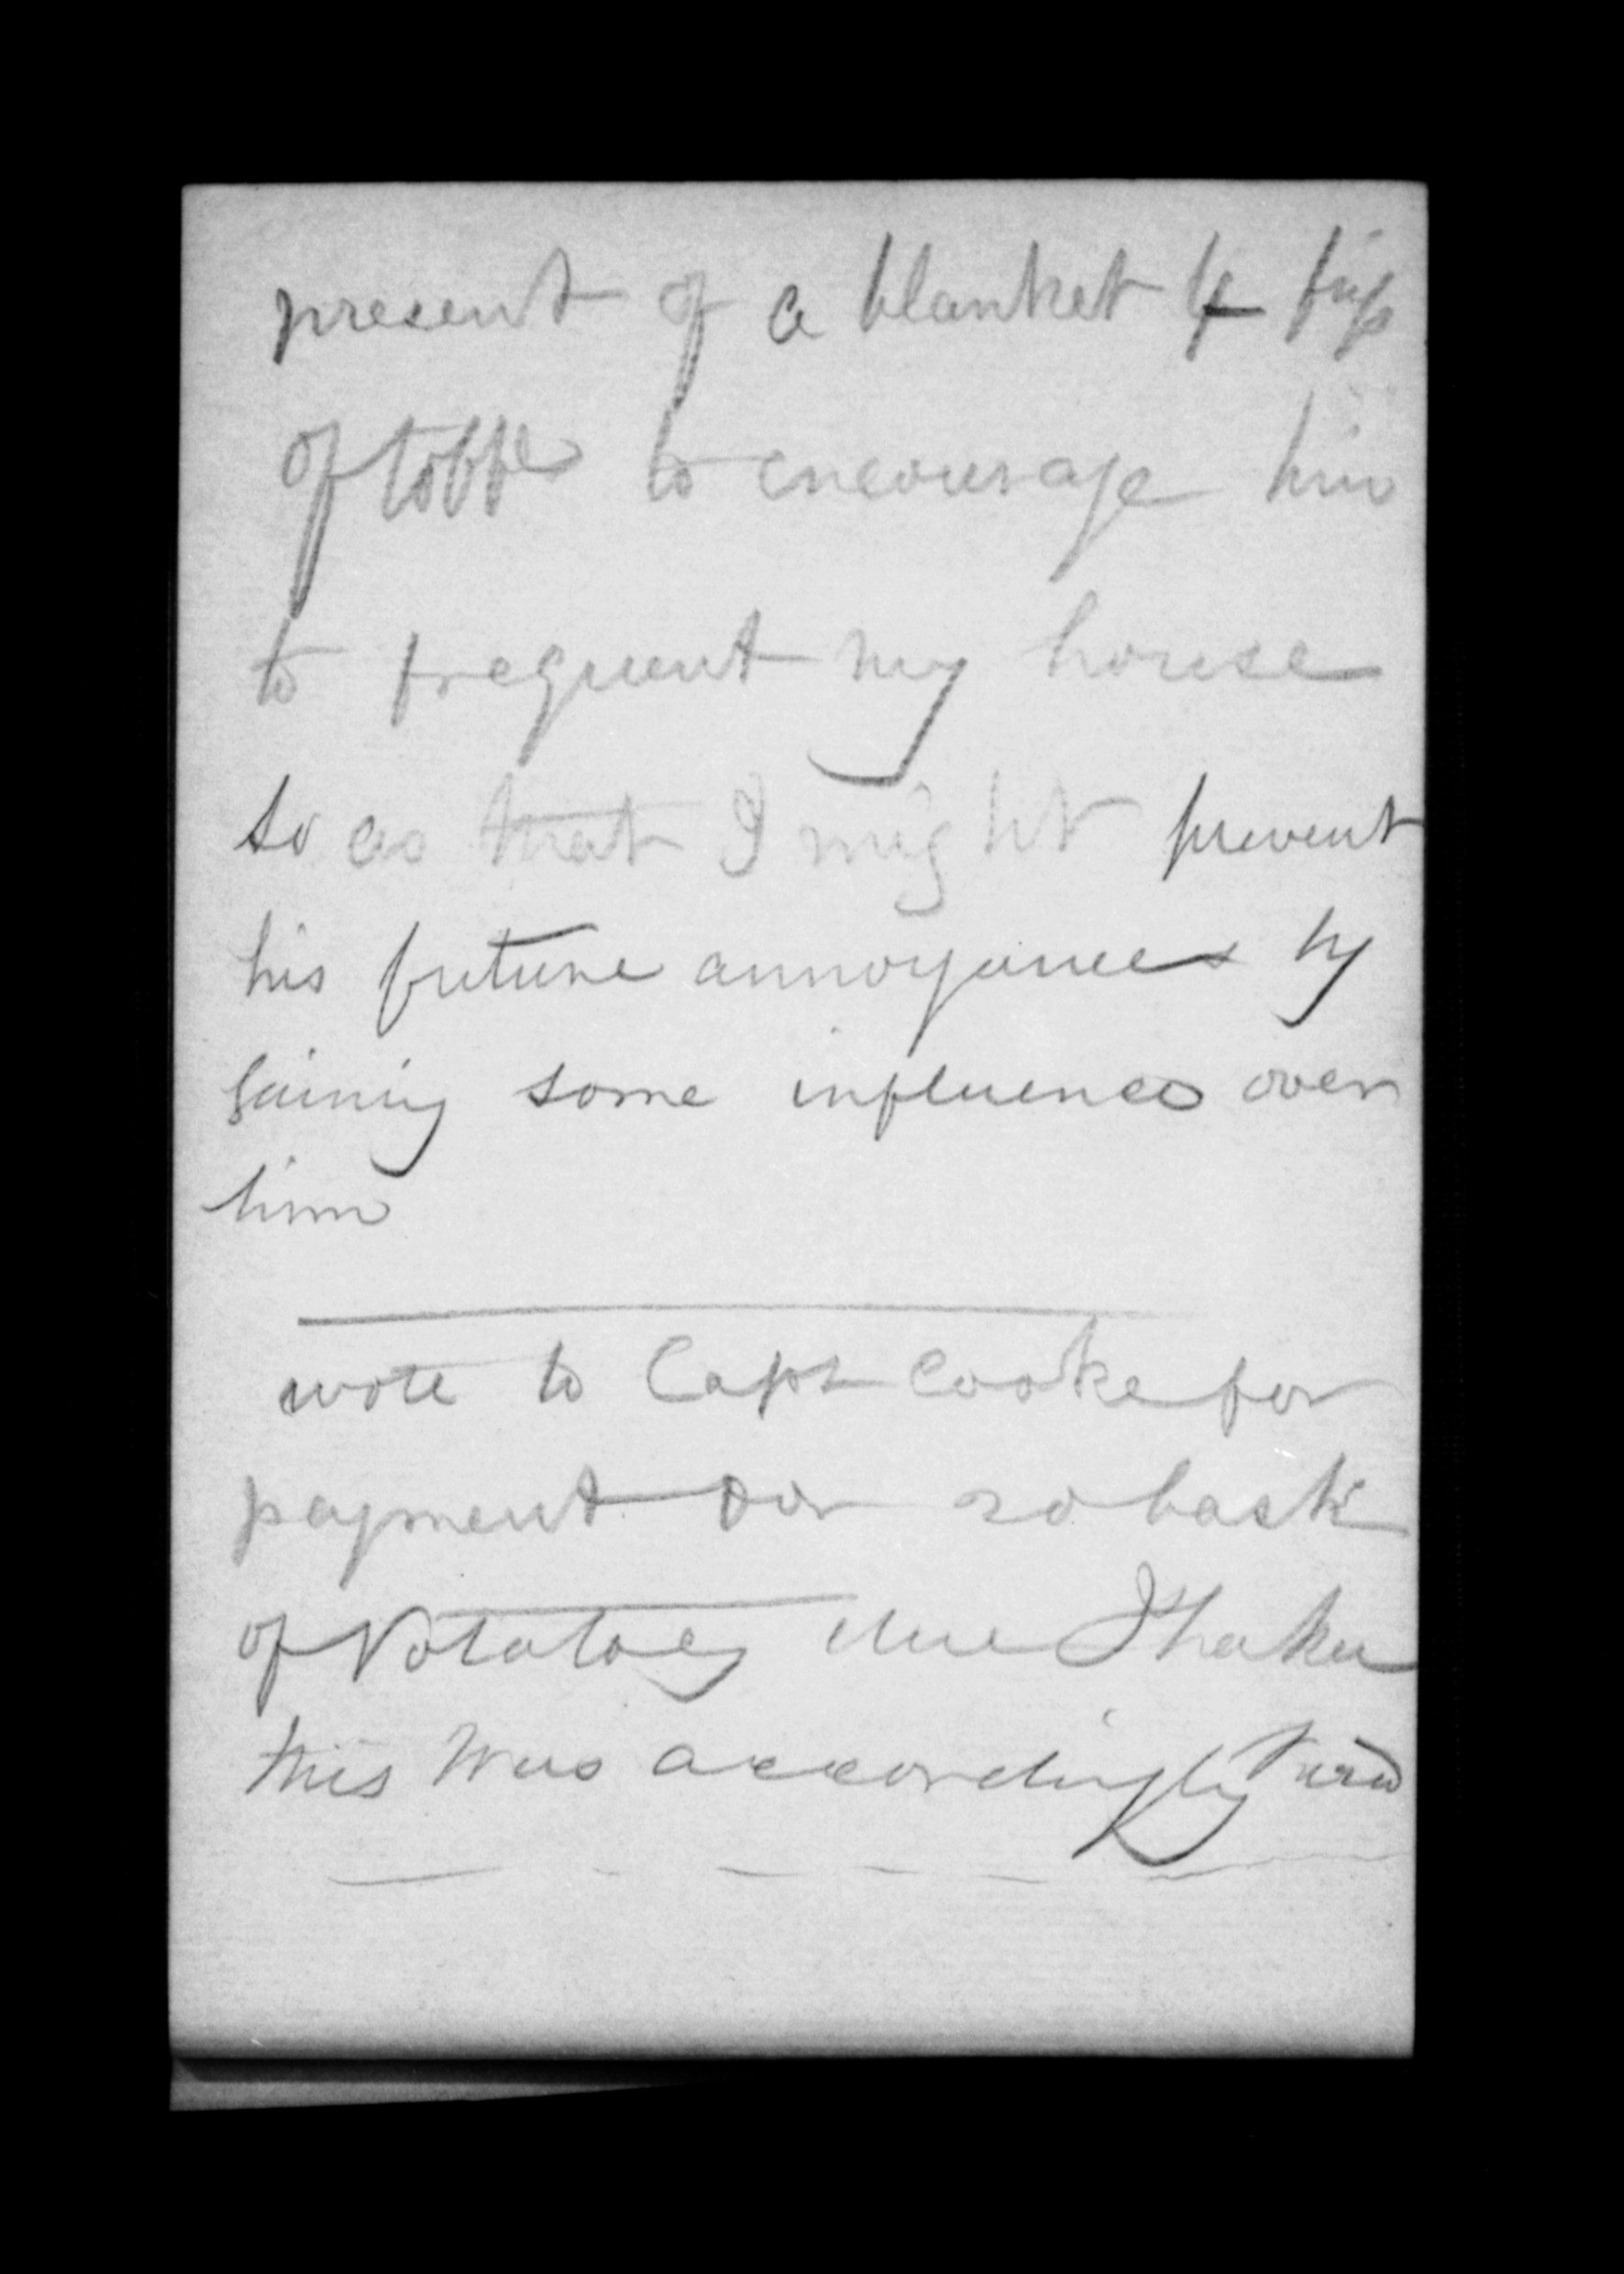 present of a blanket 4 figs
of tobb to encourage him
to frequent my house
so as that I might prevent
his future annoyances by
gaining some influence over
him
wrote to Capt Cooke for
payment for 20 bask
of Potatoes due
this was accordingly